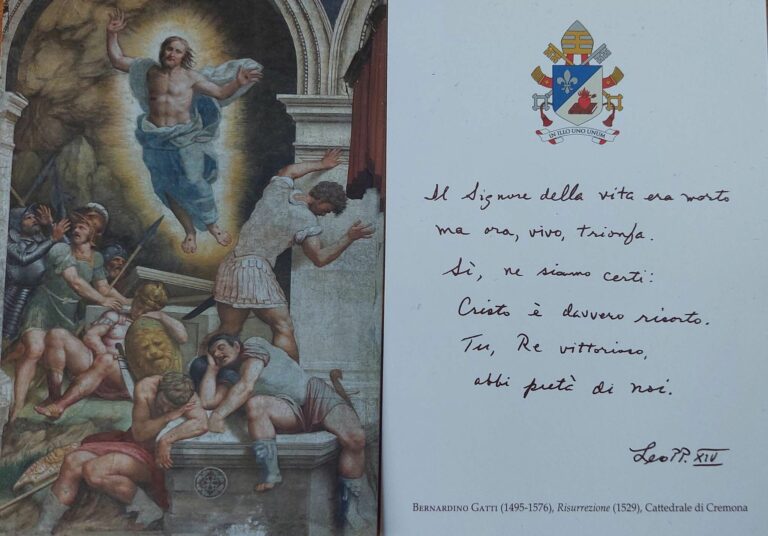 IN ILLO UNO UNUM
Il Signore della vita era morto
ma ora, vivo, trionfa.
Sì, ne siamo certi:
Cristo è davvero risorto.
Tu, Re vittorioso,
abbi pietà di noi.
Leo PP. XIV
BERNARDINO GATTI (1495-1576), Risurrezione (1529), Cattedrale di Cremona